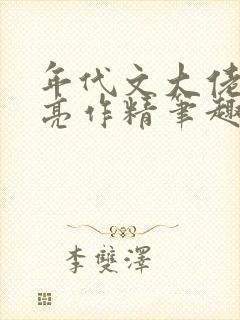 年代文大佬
亮作精笔趣
李雙澤